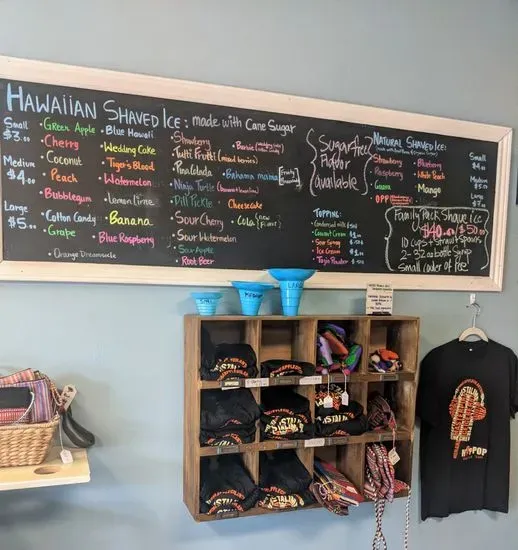 HAWAIIAN SHAVED ICE: made with Cane Sugar
Small
$3.00
Medium
$4.00
Large
$5.00
• Green Apple
• Cherry
• Coconut
• Peach
• Bubblegum
• Cotton Candy
• Grape
• Orange Dreamsicle
• Blue Hawaii
• Wedding Cake
• Tiger's Blood
• Watermelon
• Lemon Lime
• Banana
• Blue Raspberry
• Strawberry
• Tutti Frutti (mixed berries)
• Pina Colada
• Ninja Turtle
• Dill Pickle
• Sour Cherry
• Sour Watermelon
• Sour Apple
Root Beer
• Barbie
• Bahama mama
• Cheesecake
• Cola (new flavor)
Sugar free
flavor
available
TOPPING:
• Condensed milk
• Coconut Cream
• Sour Spray
• Ice Cream
• Tajin Powder
NATURAL SHAVED ICE:
• Strawberry
• Raspberry
• Guava
• OPP
• Blueberry
• White Peach
• Mango
Small
$4.00
Medium
Large
Family Pack Shave ice
$40.00 $50.00
10 cups + straw + spoons
2 - 32oz bottle syrup
Small cooler of free
SMALL
MEDIUM
LARGE
HIPPOP